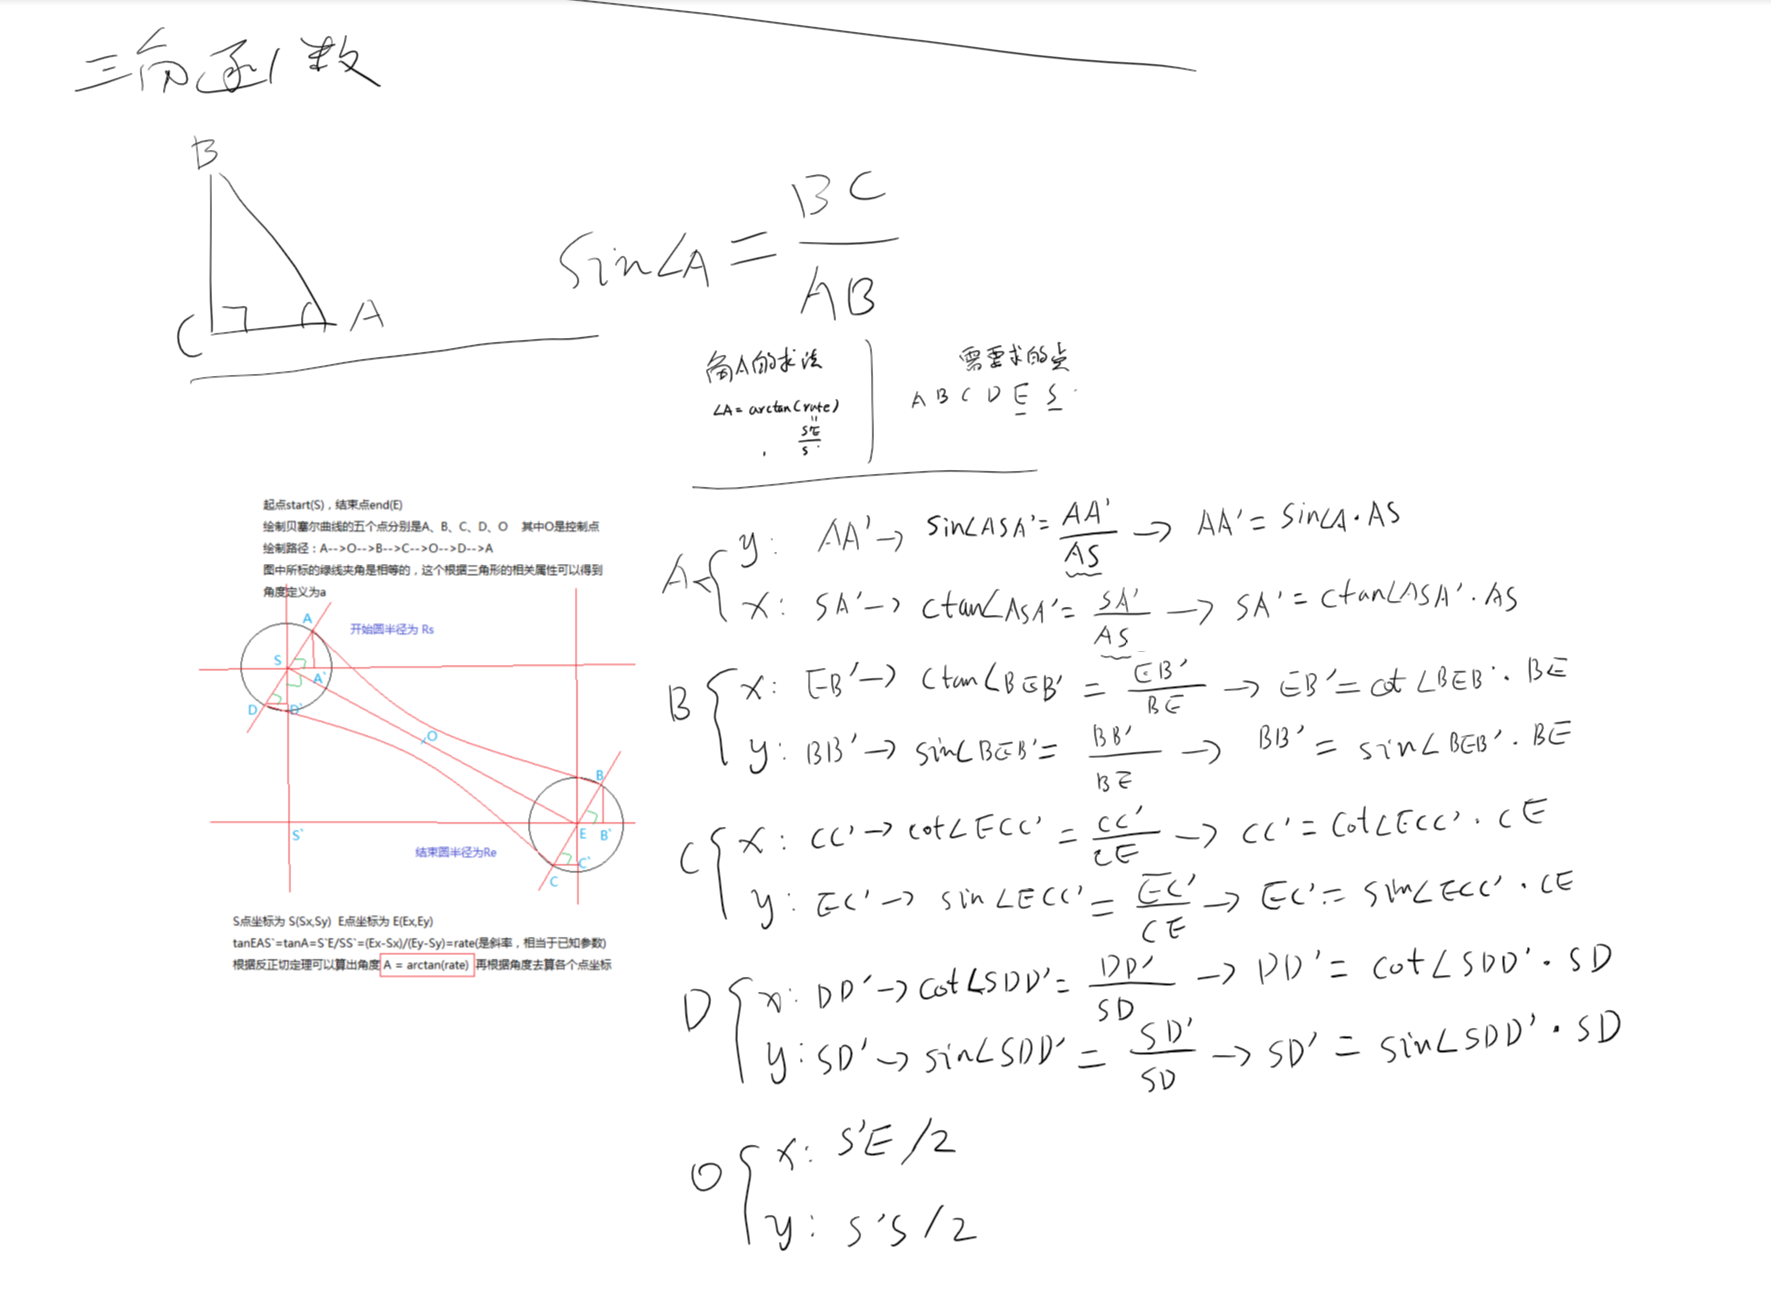 三角函数
B
C
A
sin∠A = BC/AB
角A的求法
∠A = arctan(rate)
=
S'E
S
需要求的点
A B C D E S
起点start(S)，结束点end(E)
绘制贝塞尔曲线的五个点分别是A、B、C、D、O 其中O是控制点
绘制路径：A-->O-->B-->C-->O-->D-->A
图中所标的绿线夹角是相等的，这个根据三角形的相关属性可以得到
角度定义为a
A
开始圆半径为 Rs
S
A`
D
D`
O
B
S`
E
B`
结束圆半径为Re
C`
C
S点坐标为 S(Sx,Sy) E点坐标为 E(Ex,Ey)
tanEAS`=tanA=S`E/SS`=(Ex-Sx)/(Ey-Sy)=rate(是斜率，相当于已知参数)
根据反正切定理可以算出角度 A = arctan(rate) 再根据角度去算各个点坐标
A { y: AA' → sin∠ASA' = AA'/AS → AA' = sin∠A · AS
x: SA' → ctan∠ASA' = SA'/AS → SA' = ctan∠ASA' · AS
B { x: EB' → ctan∠BEB' = EB'/BE → EB' = cot∠BEB' · BE
y: BB' → sin∠BEB' = BB'/BE → BB' = sin∠BEB' · BE
C { x: CC' → cot∠ECC' = CC'/CE → CC' = cot∠ECC' · CE
y: EC' → sin∠ECC' = EC'/CE → EC' = sin∠ECC' · CE
D { x: DD' → cot∠SDD' = DD'/SD → DD' = cot∠SDD' · SD
y: SD' → sin∠SDD' = SD'/SD → SD' = sin∠SDD' · SD
O { x: S'E/2
y: S'S/2